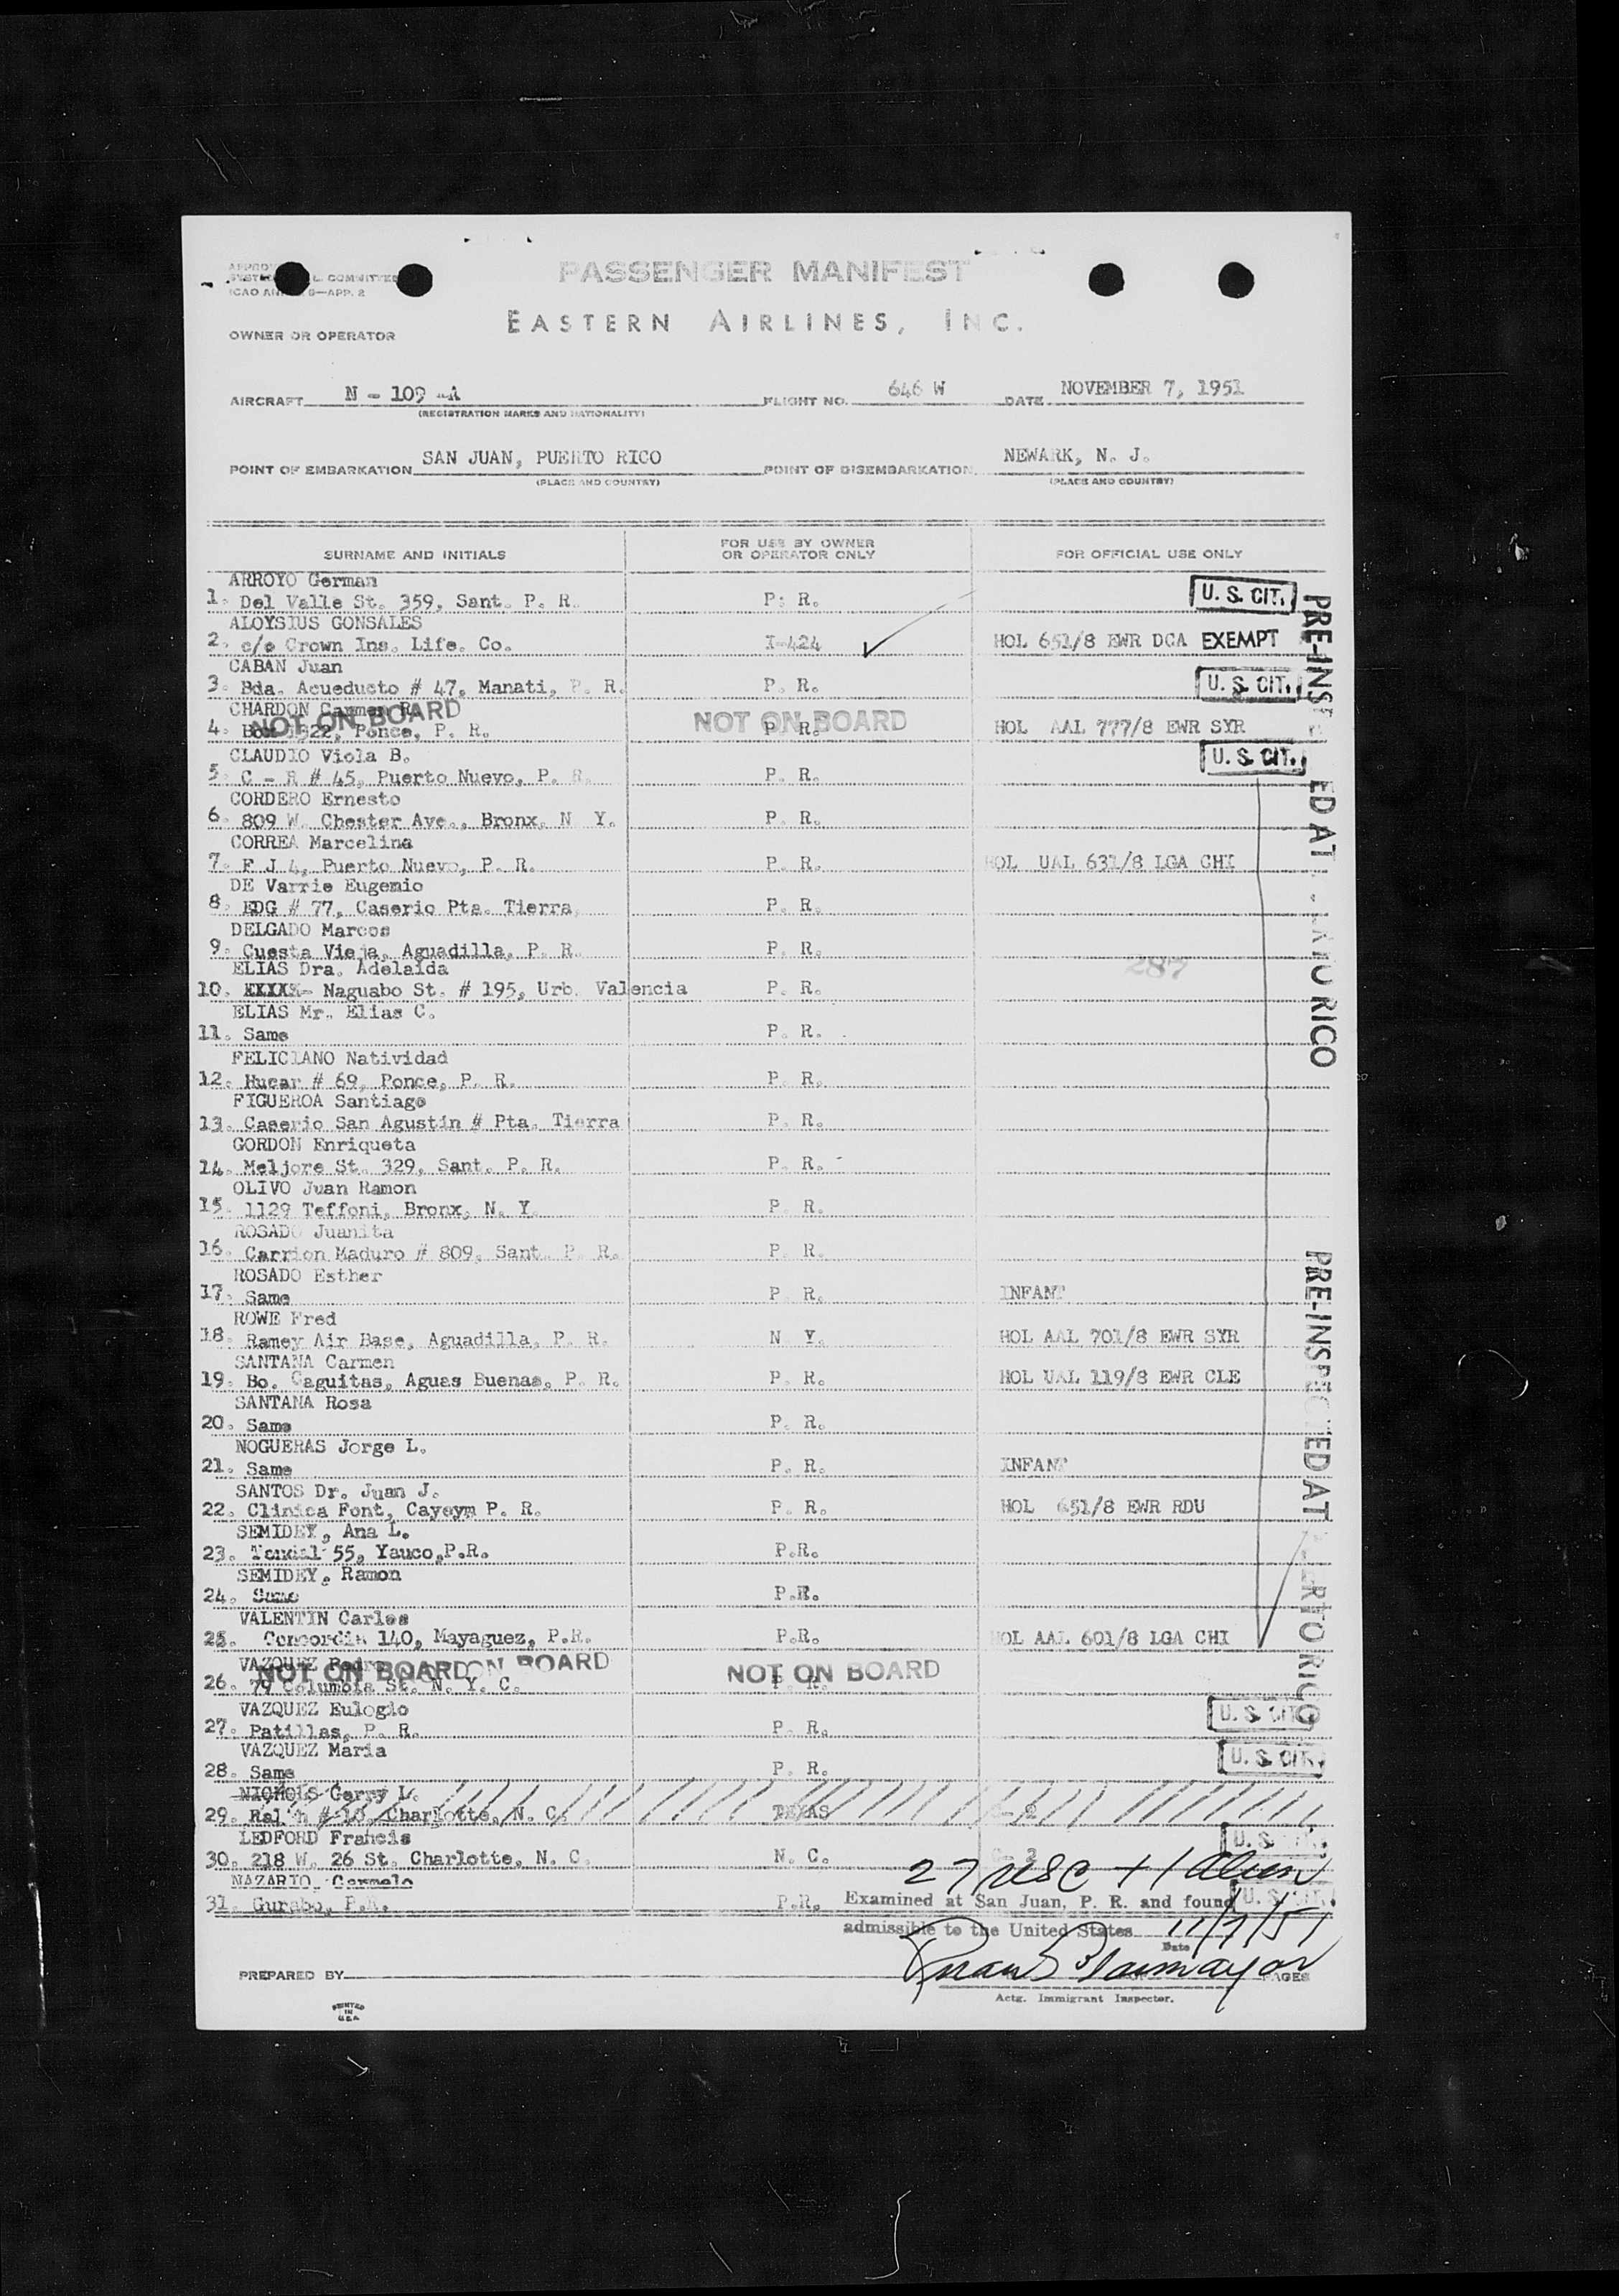 PASSENGER MANIFEST
L. COMMITTEE
ICAO 9—APP. 2
EASTERN AIRLINES, INC.
OWNER OR OPERATOR
AIRCRAFT N - 109 A FLIGHT NO. 646 W DATE NOVEMBER 7, 1951
(REGISTRATION MARKS AND NATIONALITY)
POINT OF EMBARKATION SAN JUAN, PUERTO RICO POINT OF DISEMBARKATION NEWARK, N. J.
(PLACE AND COUNTRY) (PLACE AND COUNTRY)
SURNAME AND INITIALS FOR USE BY OWNER OR OPERATOR ONLY FOR OFFICIAL USE ONLY
ARROYO German
1. Del Valle St. 359, Sant. P. R. P. R. U. S. CIT.
ALOYSIUS GONSALES
2. c/o Crown Ins. Life. Co. I-424 ✓ HOL 651/8 EWR DCA EXEMPT
CABAN Juan
3. Bda. Acueducto # 47, Manati, P. R. P. R. U. S. CIT.
CHARDON Carmen R. NOT ON BOARD NOT ON BOARD
4. Box 1322, Ponce, P. R. P. R. HOL AAL 777/8 EWR SYR
CLAUDIO Viola B. U. S. CIT.
5. C - R # 45, Puerto Nuevo, P. R. P. R.
CORDERO Ernesto
6. 809 W. Chester Ave., Bronx, N Y. P. R.
CORREA Marcelina
7. F J 4, Puerto Nuevo, P. R. P. R. HOL UAL 631/8 LGA CHI
DE Varrie Eugenio
8. EDG # 77, Caserio Pta. Tierra P. R.
DELGADO Marcos
9. Cuesta Vieja, Aguadilla, P. R. P. R.
ELIAS Dra. Adelaida 287
10. XXXXX- Naguabo St. # 195, Urb. Valencia P. R.
ELIAS Mr. Elias C.
11. Same P. R.
FELICIANO Natividad
12. Hucar # 69, Ponce, P. R. P. R.
FIGUEROA Santiago
13. Caserio San Agustin # Pta. Tierra P. R.
GORDON Enriqueta
14. Meljore St. 329, Sant. P. R. P. R.
OLIVO Juan Ramon
15. 1129 Teffoni, Bronx, N. Y. P. R.
ROSADO Juanita
16. Carrion Maduro # 809, Sant. P. R. P. R.
ROSADO Esther
17. Same P. R. INFANT
ROWE Fred
18. Ramey Air Base, Aguadilla, P. R. N Y. HOL AAL 701/8 EWR SYR
SANTANA Carmen
19. Bo. Caguitas, Aguas Buenas, P. R. P. R. HOL UAL 119/8 EWR CLE
SANTANA Rosa
20. Same P. R.
NOGUERAS Jorge L.
21. Same P. R. INFANT
SANTOS Dr. Juan J.
22. Clinica Font, Cayeym P. R. P. R. HOL 651/8 EWR RDU
SEMIDEY, Ana L.
23. Tendal 55, Yauco,P.R. P.R.
SEMIDEY, Ramon
24. Same P.R.
VALENTIN Carlos
25. Concordia 140, Mayaguez, P.R. P.R. HOL AAL 601/8 LGA CHI
VAZQUEZ Pedro NOT ON BOARD ON BOARD NOT ON BOARD
26. 79 Columbia St. N. Y. C. P. R.
VAZQUEZ Eulogio U. S. CIT.
27. Patillas, P. R. P. R.
VAZQUEZ Maria U. S. CIT.
28. Same P. R.
NICHOLS Gerry L.
29. # 10, Charlotte, N. C. TEXAS
LEDFORD Francis U. S.
30. 218 W. 26 St. Charlotte, N. C. N. C.
27 USC + 1 Alien
NAZARIO, Carmelo
31. Gurabo, P.R. P.R. Examined at San Juan, P. R. and found U. S. CIT.
admissible to the United States 11/7/51
Date
PREPARED BY PAGES
Actg. Immigrant Inspector.
PRINTED
IN
U.S.A.
PRE-INSPECTED AT RTO RICO
PRE-INSPECTED AT ERTO RICO